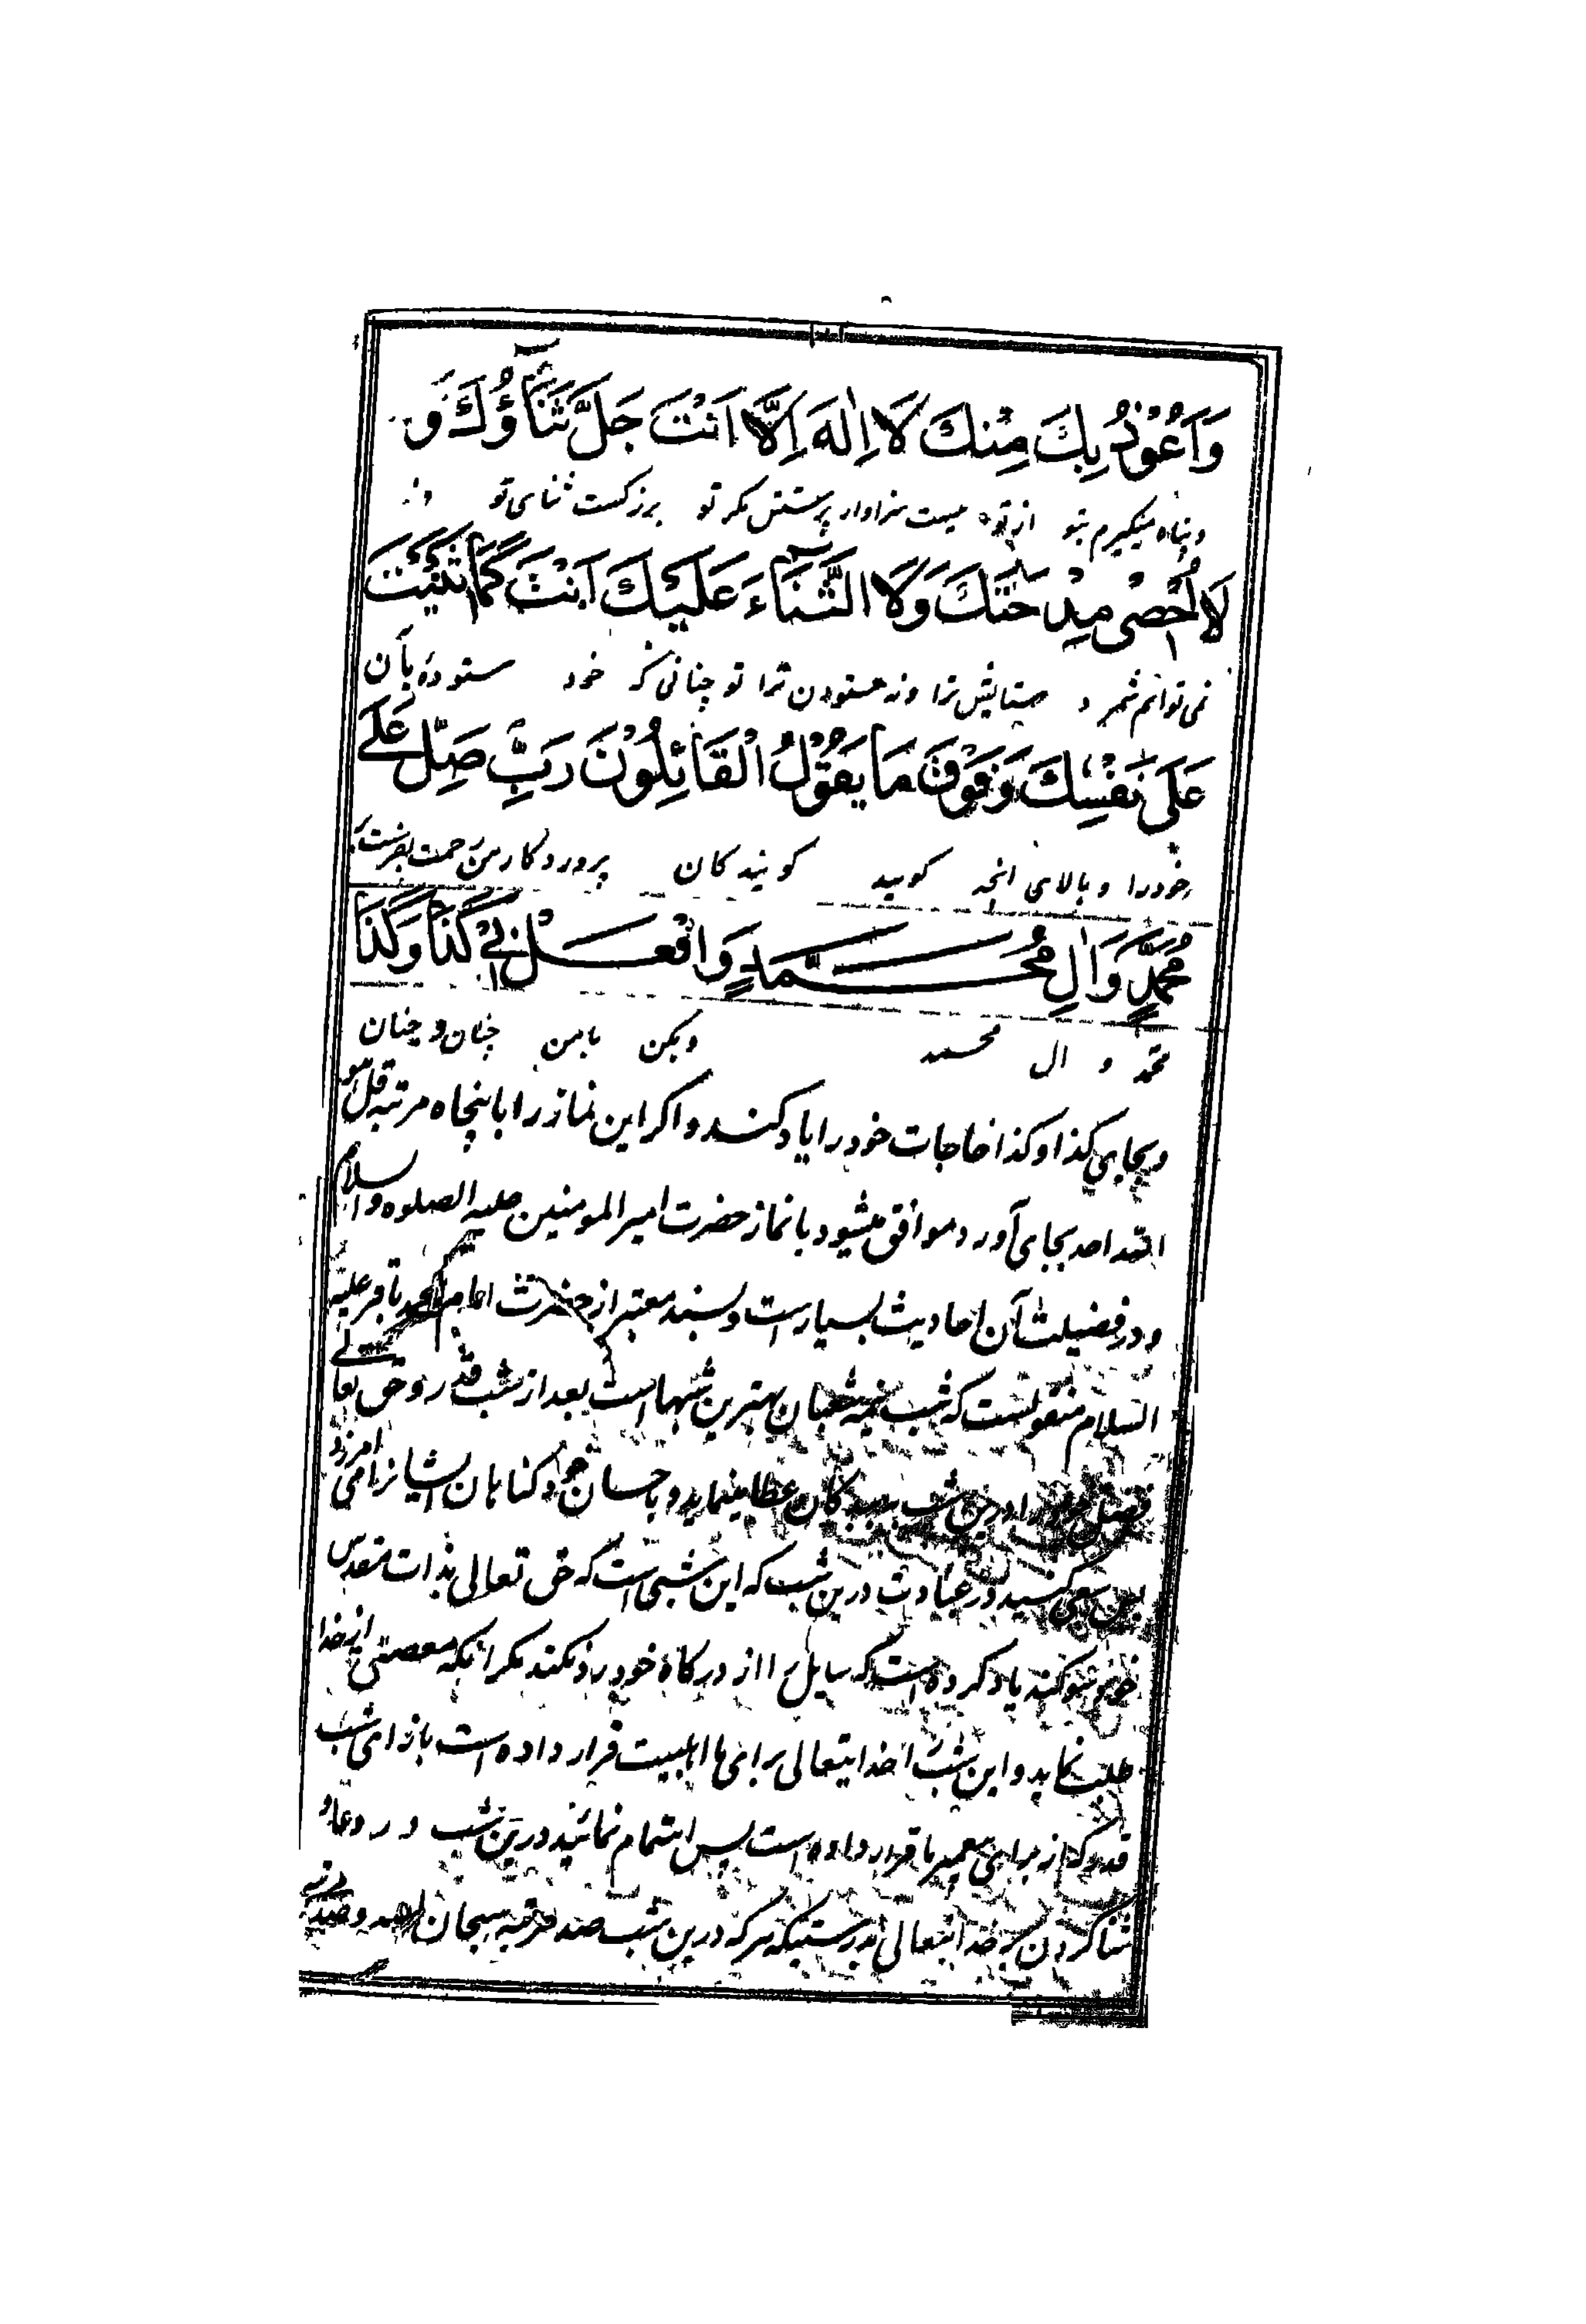 وَاَعُوْذُ بِكَ مِنْكَ لَا اِلٰهَ اِلَّا اَنْتَ جَلَّ ثَنَآؤُكَ وَ
و پناه میگیرم بتو از تو نیست سزاوار پرستش مکر تو بزرکست ثنای تو و
لَا اُحْصِیْ مِدْحَتَكَ وَلَا الثَّنَآءَ عَلَیْكَ اَنْتَ كَمَا اَثْنَیْتَ
نمی توانم شمرد ستایش ترا و نه ستودن ترا تو چنانی که خود ستودهٔ بآن
عَلٰی نَفْسِكَ وَفَوْقَ مَا یَقُوْلُ الْقَآئِلُوْنَ رَبِّ صَلِّ عَلٰے
خود را و بالای انچه کویند کویندکان پروردکار من رحمت بفرست بر
مُحَمَّدٍ وَاٰلِ مُحَمَّدٍ وَافْعَلْ بِیْ كَذَا وَكَذَا
محمد و ال محمد و بکن بامن چنان و چنان
و بجای کذا و کذا حاجات خود را یاد کند و اکر این نماز را با پنجاه مرتبه قل هو
الله احد بجای آورد موافق میشود با نماز حضرت امیر المومنین علیه الصلوه والسلام
و در فضیلت آن احادیث بسیار است و بسند معتبر از حضرت امام محمد باقر علیه
السلام منقولست که شب نیمه شعبان بهترین شبها است بعد از شب قدر و حق تعالے
فضل خود را درین شب به بندکان عطا مینماید و باحسان خود کناهان ایشانرا می امرزد
پس سعی کنید در عبادت درین شب که این شبی است که حق تعالی بذات مقدس
خود سوکند یاد کرده است که سایلی را از درکاه خود رد نکند مکر انکه معصیتی از خدا
طلب نماید و این شب را خدایتعالی برای ما اهلبیت قرار داده است بازای شب
قدر که از برای پیغمبر ما قرار داده است پس اهتمام نمائید درین شب در دعا و
ثنا کردن بر خدایتعالی بدرستیکه هرکه درین شب صد مرتبه سبحان الله و صد مرتبه